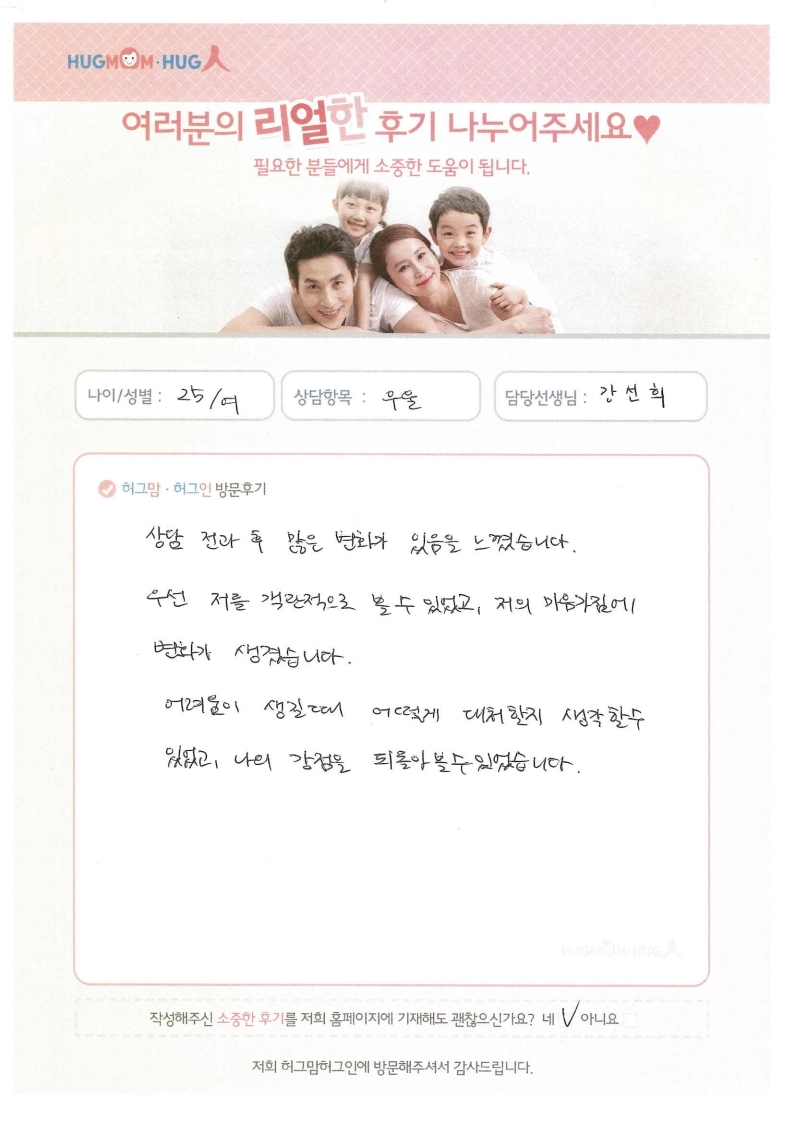 HUGMOM·HUG人
여러분의 리얼한 후기 나누어주세요♥
필요한 분들에게 소중한 도움이 됩니다.
나이/성별 : 25/여
상담항목 : 우울
담당선생님 : 강선희
허그맘·허그인 방문후기
상담 전과 후 많은 변화가 있음을 느꼈습니다.
우선 저를 객관적으로 볼 수 있었고, 저의 마음가짐에
변화가 생겼습니다.
어려움이 생길때 어떻게 대처할지 생각할수
있었고, 나의 강점을 되돌아볼수있었습니다.
HUGMOM·HUG人
작성해주신 소중한 후기를 저희 홈페이지에 기재해도 괜찮으신가요? 네 V 아니요 □
저희 허그맘허그인에 방문해주셔서 감사드립니다.